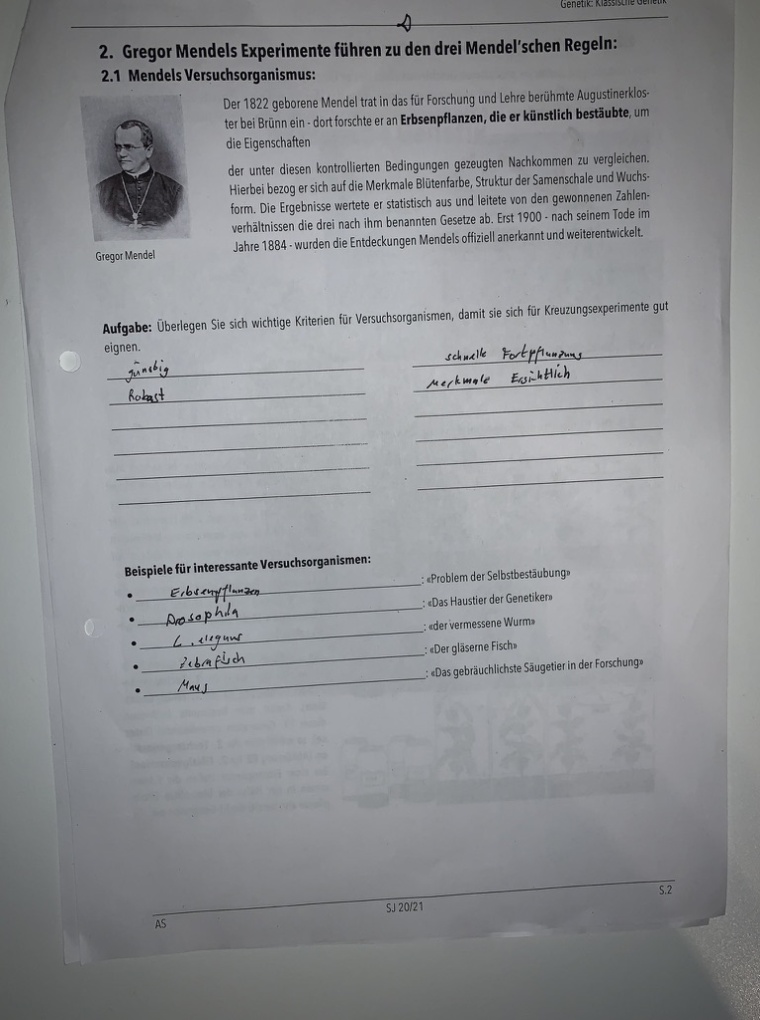 Genetik: Klassische Genetik
2. Gregor Mendels Experimente führen zu den drei Mendel'schen Regeln:
2.1 Mendels Versuchsorganismus:
Der 1822 geborene Mendel trat in das für Forschung und Lehre berühmte Augustinerklos-
ter bei Brünn ein - dort forschte er an Erbsenpflanzen, die er künstlich bestäubte, um
die Eigenschaften
der unter diesen kontrollierten Bedingungen gezeugten Nachkommen zu vergleichen.
Hierbei bezog er sich auf die Merkmale Blütenfarbe, Struktur der Samenschale und Wuchs-
form. Die Ergebnisse wertete er statistisch aus und leitete von den gewonnenen Zahlen-
verhältnissen die drei nach ihm benannten Gesetze ab. Erst 1900 - nach seinem Tode im
Jahre 1884 - wurden die Entdeckungen Mendels offiziell anerkannt und weiterentwickelt.
Gregor Mendel
Aufgabe: Überlegen Sie sich wichtige Kriterien für Versuchsorganismen, damit sie sich für Kreuzungsexperimente gut
eignen.
günstig
Robust
schnelle Fortpflanzung
Merkmale Ersichtlich
Beispiele für interessante Versuchsorganismen:
• Erbsenpflanzen : «Problem der Selbstbestäubung»
• Drosophila : «Das Haustier der Genetiker»
• C. elegans : «der vermessene Wurm»
• Zebrafisch : «Der gläserne Fisch»
• Maus : «Das gebräuchlichste Säugetier in der Forschung»
AS SJ 20/21 S.2